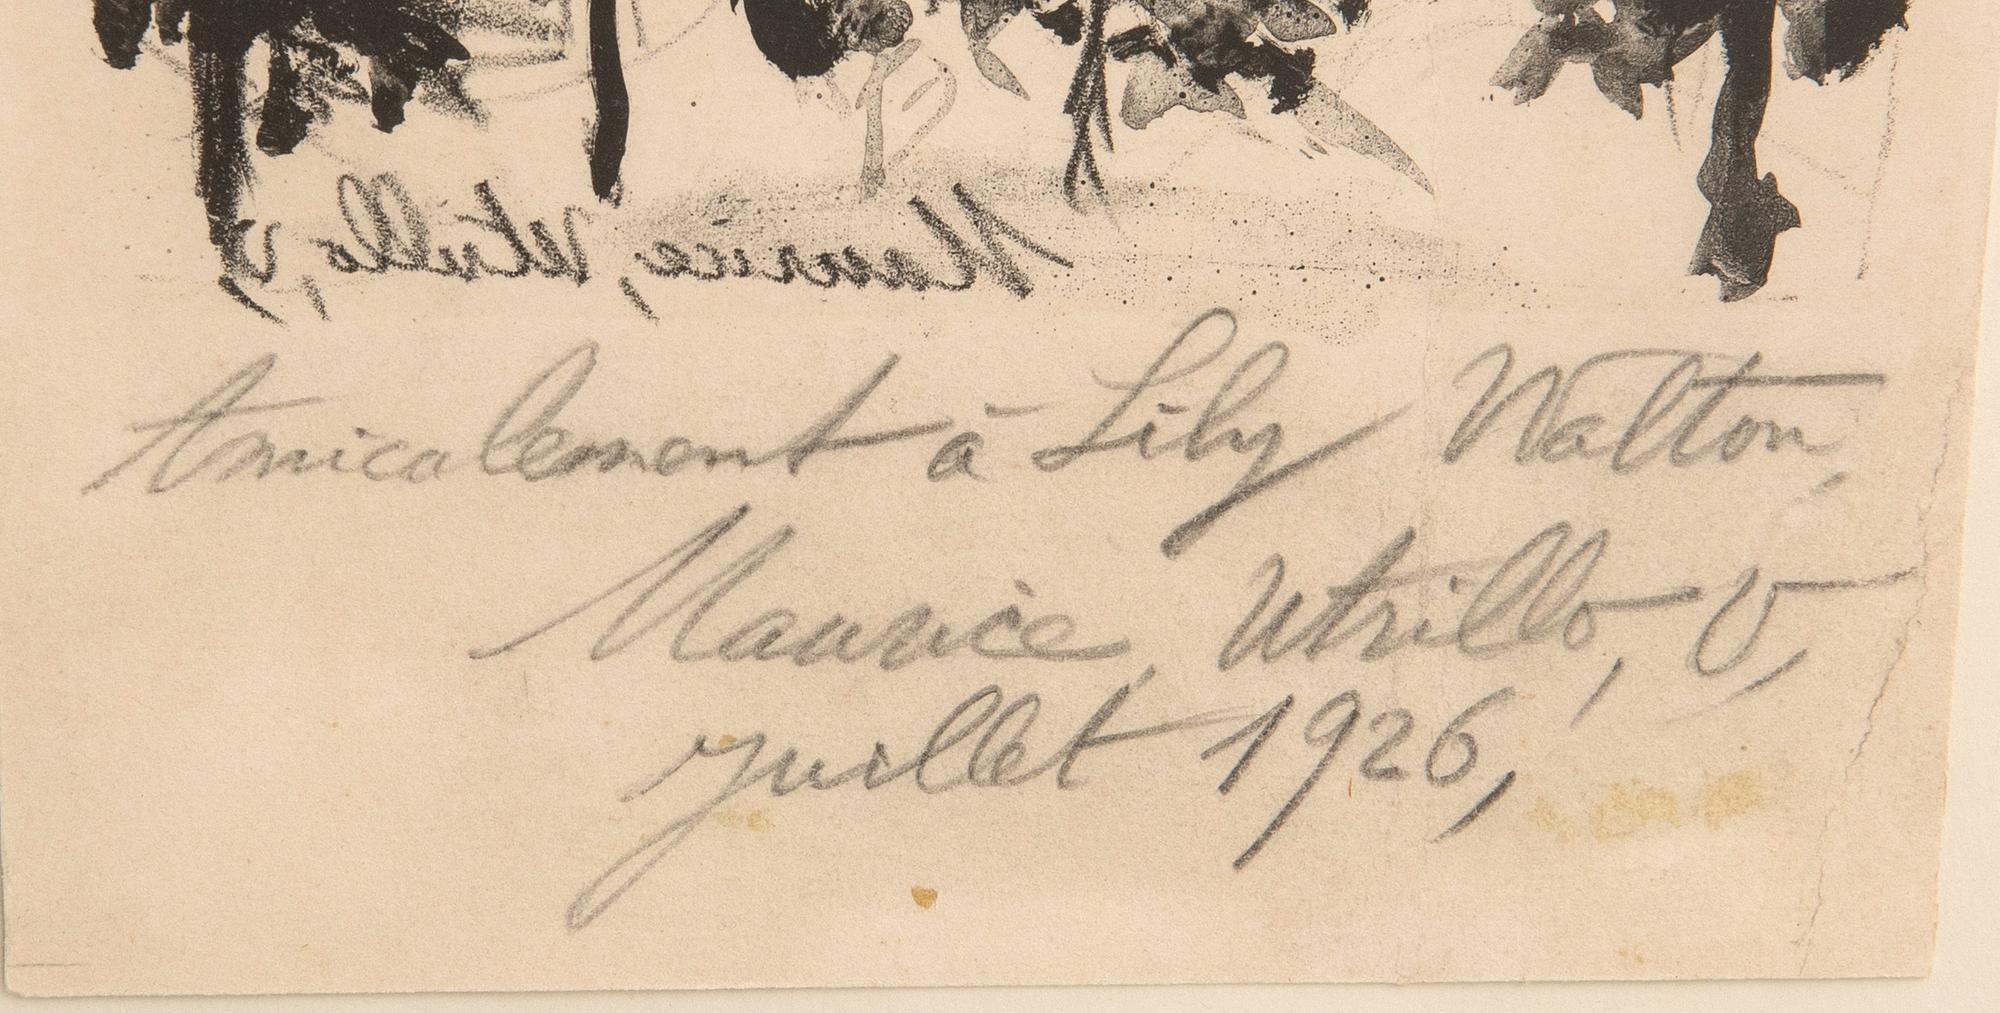 Maurice, Utrillo, V,
Amicalement à Lily Walton,
Maurice, Utrillo, V,
juillet 1926,